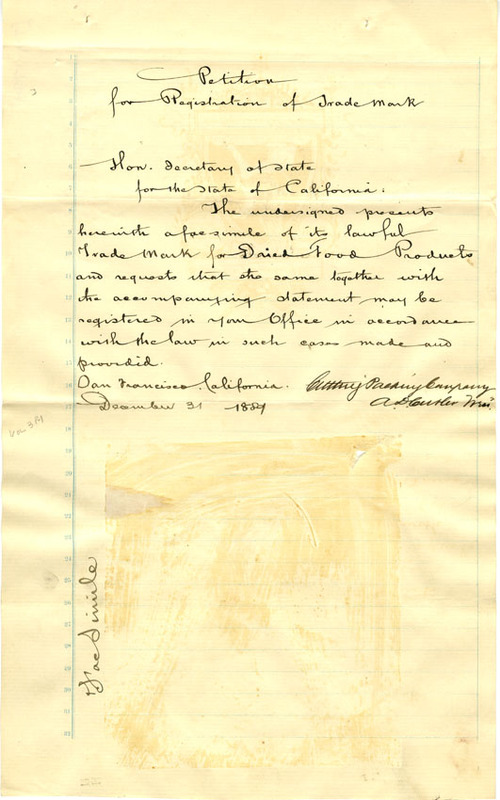 Petition
for Registration of Trade Mark
Hon. Secretary of State
for the State of California:
The undersigned presents
herewith a facsimile of its lawful
Trade Mark for Dried Food Products
and requests that the same together with
the accompanying statement may be
registered in your Office in accordance
with the law in such cases made and
provided.
San Francisco. California. Cutting Packing Company
December 31 1889
Fac Simile